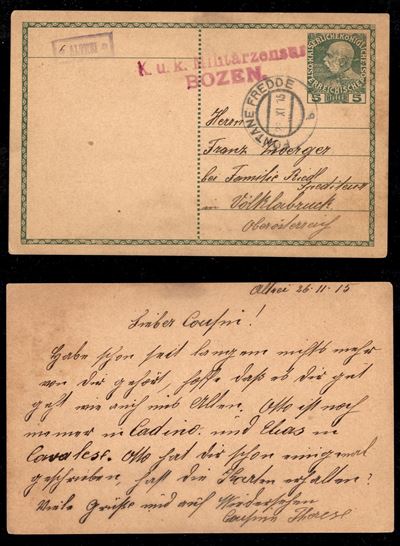 K. u. k. Militärzensur
BOZEN.
FONTANE FREDDE
XI 15
KAISERLICHE KÖNIGLICHE
ÖSTERREICHISCHE
5 5
Herrn
Franz
bei Familie Riedl
Spediteur
in Völklabruck
Oberösterreich
Altrei 26.11.15
Lieber Cousin!
Habe schon seit langem nichts mehr
von dir gehört, hoffe daß es dir gut
geht wie auch uns Allen. Otto ist noch
immer in Cadino und Elias in
Cavalese. Otto hat dir schon einigemal
geschrieben, hast die Karten erhalten?
Viele Grüße und auf Wiedersehen
Cousine Therese